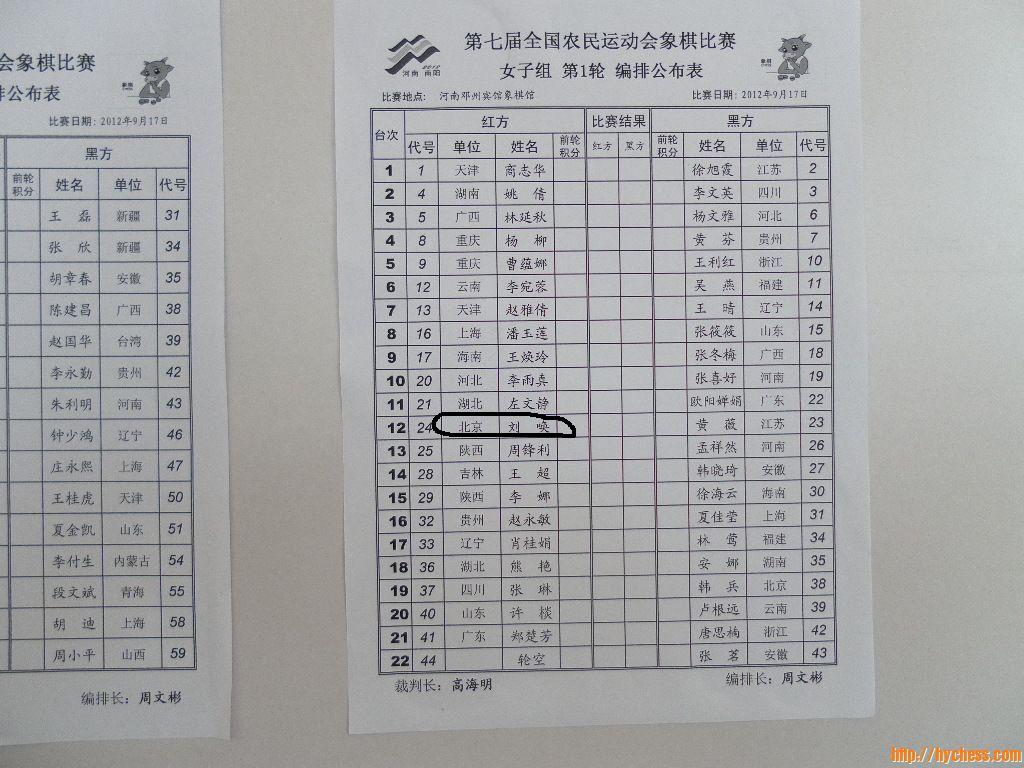 会象棋比赛
排公布表
比赛日期: 2012年9月17日
黑方
前轮积分 姓名 单位 代号
王 磊 新疆 31
张 欣 新疆 34
胡章春 安徽 35
陈建昌 广西 38
赵国华 台湾 39
李永勤 贵州 42
朱利明 河南 43
钟少鸿 辽宁 46
庄永熙 上海 47
王桂虎 天津 50
夏金凯 山东 51
李付生 内蒙古 54
段文斌 青海 55
胡 迪 上海 58
周小平 山西 59
编排长: 周文彬
2012
河南 南阳
第七届全国农民运动会象棋比赛
女子组 第1轮 编排公布表
象棋
比赛地点: 河南邓州宾馆象棋馆 比赛日期: 2012年9月17日
台次 红方 比赛结果 黑方
代号 单位 姓名 前轮积分 红方 黑方 前轮积分 姓名 单位 代号
1 1 天津 商志华 徐旭霞 江苏 2
2 4 湖南 姚 倩 李文英 四川 3
3 5 广西 林延秋 杨文雅 河北 6
4 8 重庆 杨 柳 黄 芬 贵州 7
5 9 重庆 曹蕴娜 王利红 浙江 10
6 12 云南 李宛蓉 吴 燕 福建 11
7 13 天津 赵雅倩 王 晴 辽宁 14
8 16 上海 潘玉莲 张筱筱 山东 15
9 17 海南 王焕玲 张冬梅 广西 18
10 20 河北 李雨真 张喜好 河南 19
11 21 湖北 左文谤 欧阳婵娟 广东 22
12 24 北京 刘 唤 黄 薇 江苏 23
13 25 陕西 周锋利 孟祥然 河南 26
14 28 吉林 王 超 韩晓琦 安徽 27
15 29 陕西 李 娜 徐海云 海南 30
16 32 贵州 赵永敏 夏佳莹 上海 31
17 33 辽宁 肖桂娟 林 莺 福建 34
18 36 湖北 熊 艳 安 娜 湖南 35
19 37 四川 张 琳 韩 兵 北京 38
20 40 山东 许 棪 卢根远 云南 39
21 41 广东 郑楚芳 唐思楠 浙江 42
22 44 轮空 张 茗 安徽 43
裁判长: 高海明 编排长: 周文彬
http://hychess.com